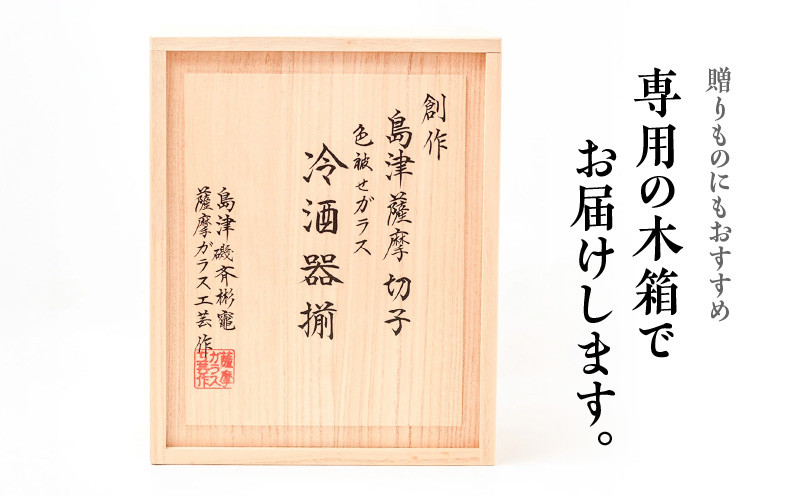 贈りものにもおすすめ
専用の木箱で
お届けします。
創作
島津薩摩切子
色被せガラス
冷酒器揃
島津磯斉彬竈
薩摩ガラス工芸作
薩摩
ガラス
工芸作